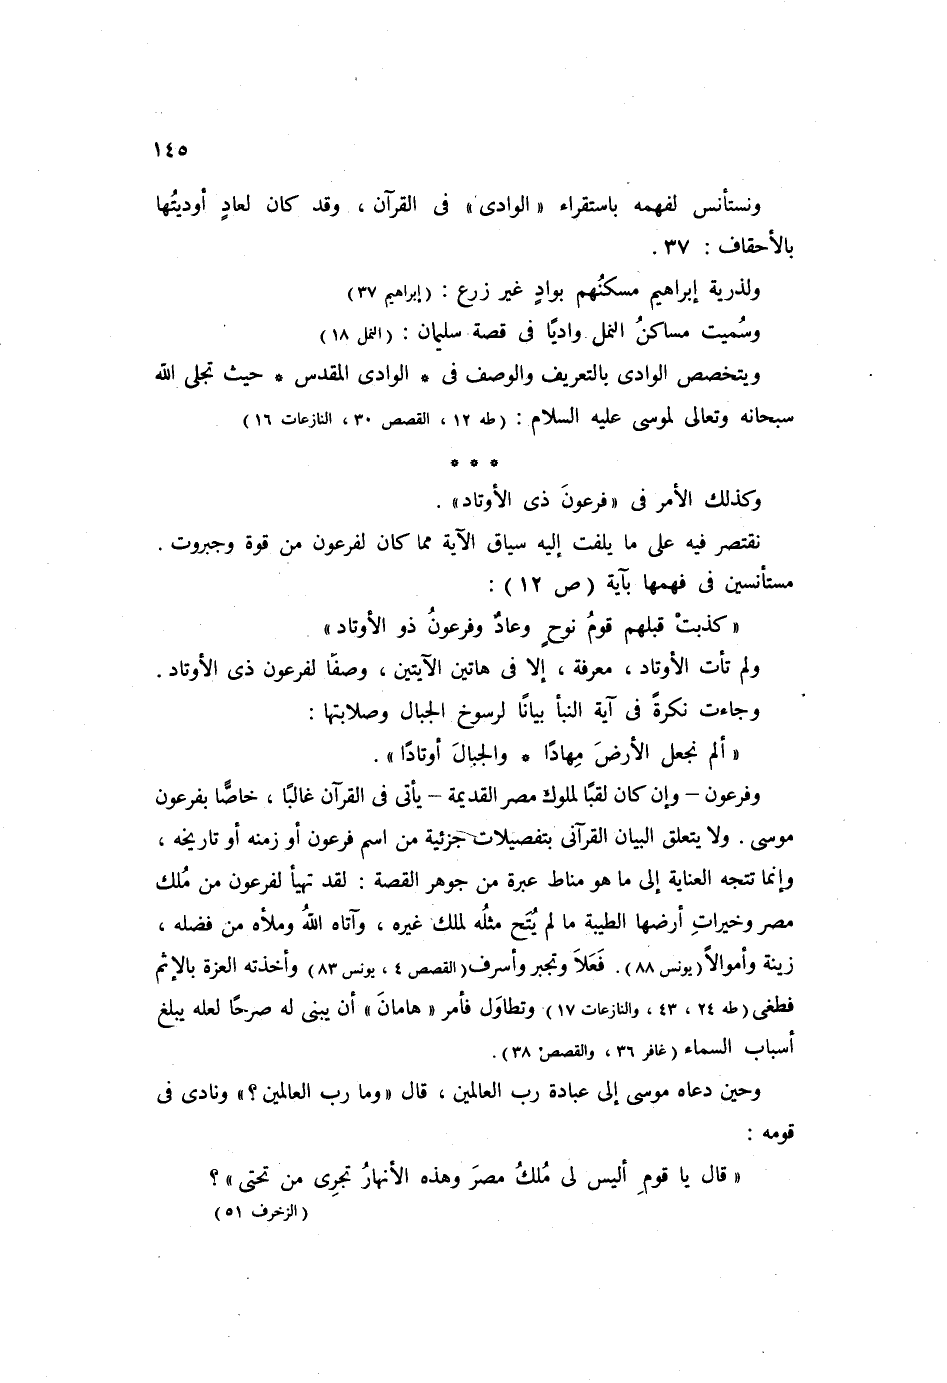 ١٤٥
ونستأنس لفهمه باستقراء «الوادى» فى القرآن ، وقد كان لعادٍ أوديتُها
بالأحقاف : ٣٧ .
ولذرية إبراهيم مسكنُهم بوادٍ غير زرع : (إبراهيم ٣٧)
وسُميت مساكنُ النمل واديًا فى قصة سليمان : (النمل ١٨)
ويتخصص الوادى بالتعريف والوصف فى * الوادى المقدس * حيث تجلى الله
سبحانه وتعالى لموسى عليه السلام : (طه ١٢ ، القصص ٣٠ ، النازعات ١٦)
* * *
وكذلك الأمر فى «فرعونَ ذى الأوتاد» .
نقتصر فيه على ما يلفت إليه سياق الآية مما كان لفرعون من قوة وجبروت .
مستأنسين فى فهمها بآية (ص ١٢) :
«كذبتْ قبلهم قومُ نوحٍ وعادٌ وفرعونُ ذو الأوتاد»
ولم تأت الأوتاد ، معرفة ، إلا فى هاتين الآيتين ، وصفًا لفرعون ذى الأوتاد .
وجاءت نكرةً فى آية النبأ بيانًا لرسوخ الجبال وصلابتها :
«ألم نجعل الأرضَ مِهادًا * والجبالَ أوتادًا» .
وفرعون – وإن كان لقبًا لملوك مصر القديمة – يأتى فى القرآن غالبًا ، خاصًّا بفرعون
موسى . ولا يتعلق البيان القرآنى بتفصيلات جزئية من اسم فرعون أو زمنه أو تاريخه ،
وإنما تتجه العناية إلى ما هو مناط عبرة من جوهر القصة : لقد تهيأ لفرعون من مُلك
مصر وخيراتِ أرضها الطيبة ما لم يُتَح مثلُه لملك غيره ، وآتاه اللهُ وملأه من فضله ،
زينة وأموالاً (يونس ٨٨) . فَعَلاَ وتجبر وأسرف (القصص ٤ ، يونس ٨٣) وأخذته العزة بالإثم
فطغى (طه ٢٤ ، ٤٣ ، والنازعات ١٧) وتطاوَل فأمر «هامانَ» أن يبنى له صرحًا لعله يبلغ
أسباب السماء (غافر ٣٦ ، والقصص ٣٨) .
وحين دعاه موسى إلى عبادة رب العالمين ، قال «وما رب العالمين ؟» ونادى فى
قومه :
«قال يا قومِ أليس لى مُلكُ مصرَ وهذه الأنهارُ تجرِى من تحتى» ؟
(الزخرف ٥١)